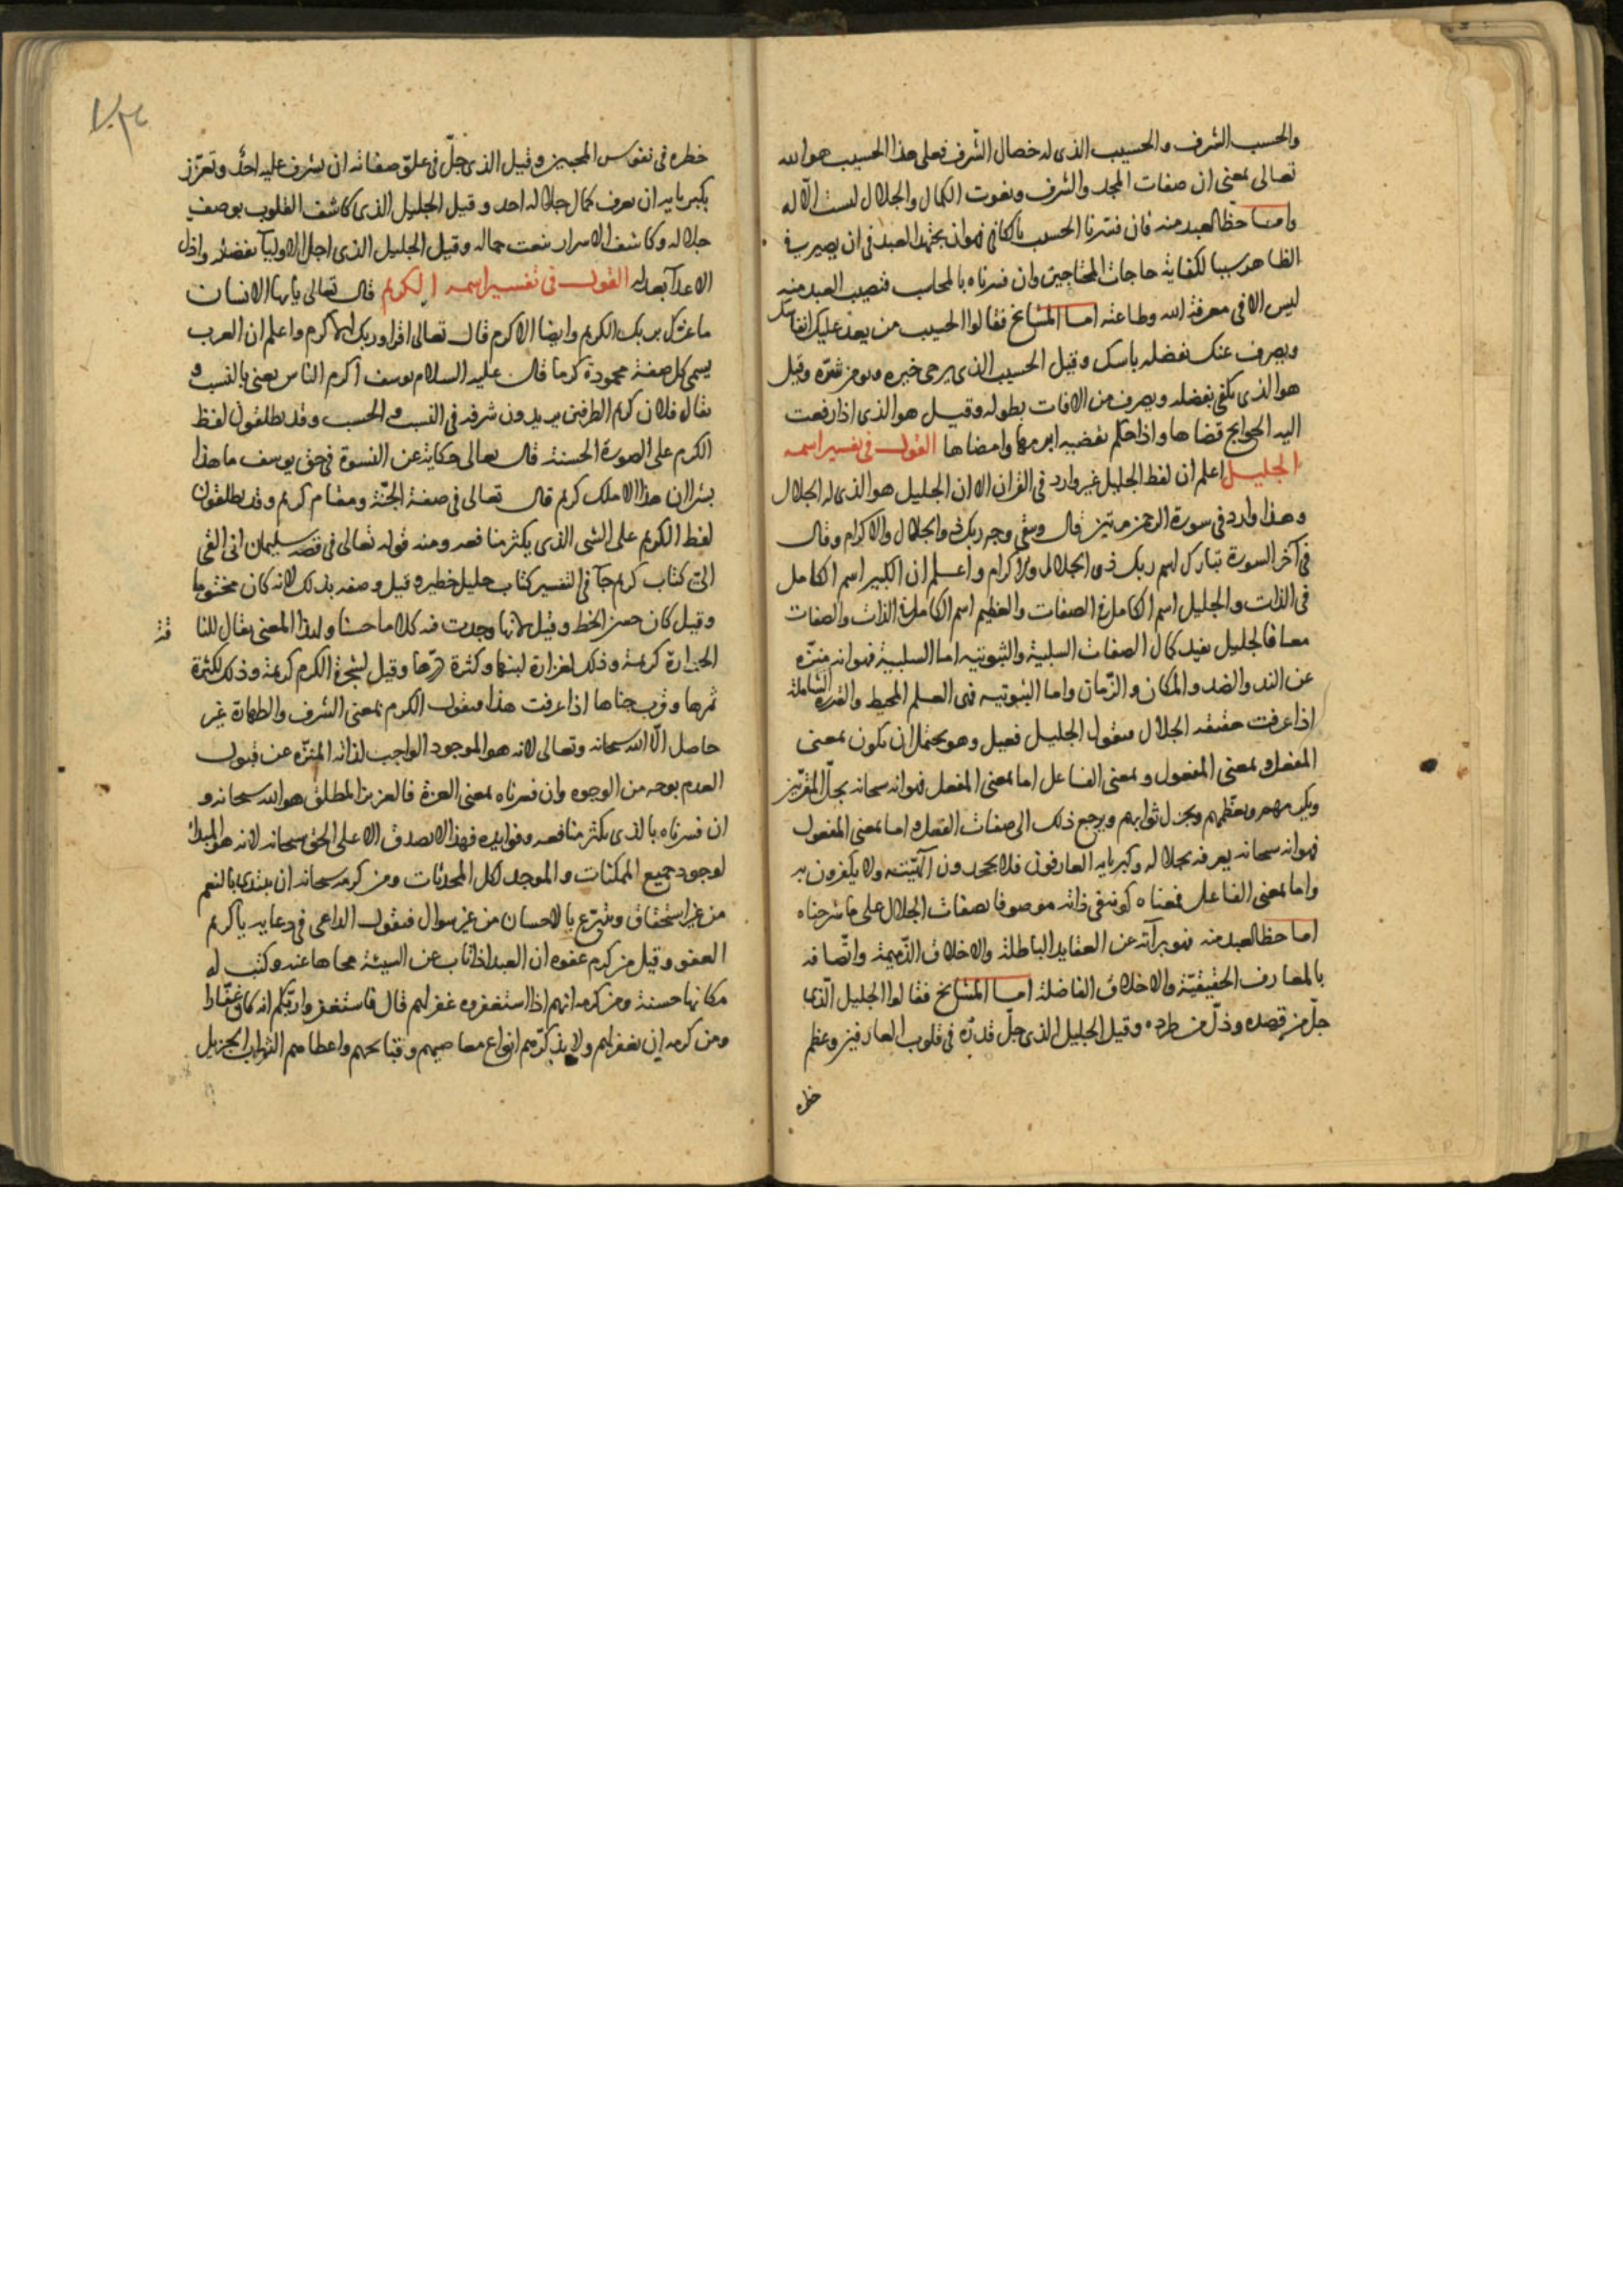 والحسب الشرف والحسيب الذى له خصال الشرف فعلى هذا الحسيب هو الله
تعالى بمعنى ان صفات المجد والشرف ونعوت الكمال والجلال ليست الّا له
وامـا حظ العبد منه فان فسّرنا الحسيب بالكافى فهو ان يجتهد العبد فى ان يصير فى
الظاهر سببا لكفاية حاجات المحتاجين وان فسرناه بالمحاسب فنصيب العبد منه
ليس الا فى معرفة الله وطاعته امـا المشايخ فقالوا الحسيب من يعد عليك انفاسك
ويصرف عنك بفضله باسك وقيل الحسيب الذى يرجى خيره ويومن شرّه وقيل
هو الذى يكفى بفضله ويصرف من الافات بطوله وقيـل هو الذى اذا رفعت
اليه الحوايج قضاها واذا حكم بقضيه ابرمها وامضاها القول فى تفسير اسمه
الجليـل اعلم ان لفظ الجليل غير وارد فى القران الا ان الجليل هو الذى له الجلال
وهذا وارد فى سورة الرحمن مرتين قال ويبقى وجه ربك ذو الجلال والاكرام وقال
فى آخر السورة تبارك اسم ربك ذى الجلال والاكرام واعلم ان الكبير اسم الكامل
فى الذات والجليل اسم الكامل فى الصفات والعظيم اسم الكامل فى الذات والصفات
معا فالجليل يفيد كمال الصفات السلبية والثبوتيه اما السلبية فهو انه منزّه
عن الند والضد والمكان والزّمان واما الثبوتيه فهى العلم المحيط والقدرة الشاملة
اذا عرفت حقيقه الجلال فنقول الجليـل فعيل وهو يحتمل ان يكون بمعنى
المفعل وبمعنى المفعول وبمعنى الفاعل اما بمعنى المفعل فهو انه سبحانه يجلّ المقرّبين
ويكرمهم ويعظّمهم ويجزل ثوابهم ويرجع ذلك الى صفات الفعل واما بمعنى المفعول
فهو انه سبحانه يعرفه بجلاله وكبريايه العارفون فلا يجحدون الهيّته ولا يكفرون به
واما بمعنى الفاعل فمعناه كونه فى ذاته موصوفا بصفات الجلال على ما شرحناه
اما حظ العبد منه فهو برآته عن العقايد الباطلة والاخلاق الذّميمة واتّصافه
بالمعارف الحقيقيّة والاخلاق الفاضلة امـا المشايخ فقالوا الجليل الّذى
جلّ من قصده وذلّ من طرده وقيل الجليل الذى جلّ قدره فى قلوب العارفين وعظم
خطره
خطره فى نفوس المحبين وقيل الذى جلّ فى علوّ صفاته ان يشرف عليه احدٌ وتعزّز
بكبريايه ان يعرف كمال جلاله احد وقيل الجليل الذى كاشف القلوب بوصف
جلاله وكاشف الاسرار بنعت جماله وقيل الجليل الذى اجل الاوليآ بفضله واذل
الاعدآ بعدله القول فى تفسير اسمه الكريم قال تعالى يايها الانسان
ما غرّك بربك الكريم وايضا الاكرم قال تعالى اقرا وربك الاكرم واعلم ان العرب
يسمى كل صفة محمودة كرما قال عليه السلام يوسف اكرم الناس يعنى بالنسب و
يقال فلان كريم الطرفين يريدون شرفه فى النسب والحسب وقد يطلقون لفظ
الكرم على الصورة الحسنة قال تعالى حكاية عن النسوة فى حق يوسف ما هذا
بشرا ان هذا الا ملك كريم قال تعالى فى صفة الجنّة ومقام كريم وقد يطلقون
لفظ الكريم على الشى الذى يكثر منافعه ومنه قوله تعالى فى قصه سليمان انى القى
الىّ كتاب كريم جآ فى التفسير كتاب جليل خطير وقيل وصفه بذلك لانه كان مختوما
وقيل كان حسن الخط وقيل لانها وجدت فيه كلاما حسنا ولهذا المعنى يقال للنا
قة
الغزارة كريمة وذلك لغزارة لبنها وكثرة درّها وقيل لشجرة الكرم كريمة وذلك لكثرة
ثمرها وقرب جناها اذا عرفت هذا فنقول الكرم بمعنى الشرف والطهارة غير
حاصل الّا الله سبحانه وتعالى لانه هو الموجود الواجب لذاته المنزّه عن قبول
العدم بوجه من الوجوه وان فسرناه بمعنى العزة فالعزيز المطلق هو الله سبحانه و
ان فسرناه بالذى يكثر منافعه وفوايده فهذا لا يصدق الا على الحق سبحانه لانه هو المبدأ
لوجود جميع الممكنات والموجد لكل المحدثات ومن كرمه سبحانه ان يبتدى بالنعم
من غير استحقاق ويتبرّع بالاحسان من غير سوال فيقول الداعى فى دعايه يا كريم
العفو وقيل من كرم عفوه ان العبد اذا تاب عن السيئة محاها عنه وكتب له
مكانها حسنة ومن كرمه انهم اذا استغفروه غفر لهم قال فاستغفروا ربّكم انه كان غفّارا
ومن كرمه ان يغفر لهم ولا يذكّرهم انواع معاصيهم وقبايحهم واعطاهم الثواب الجزيل